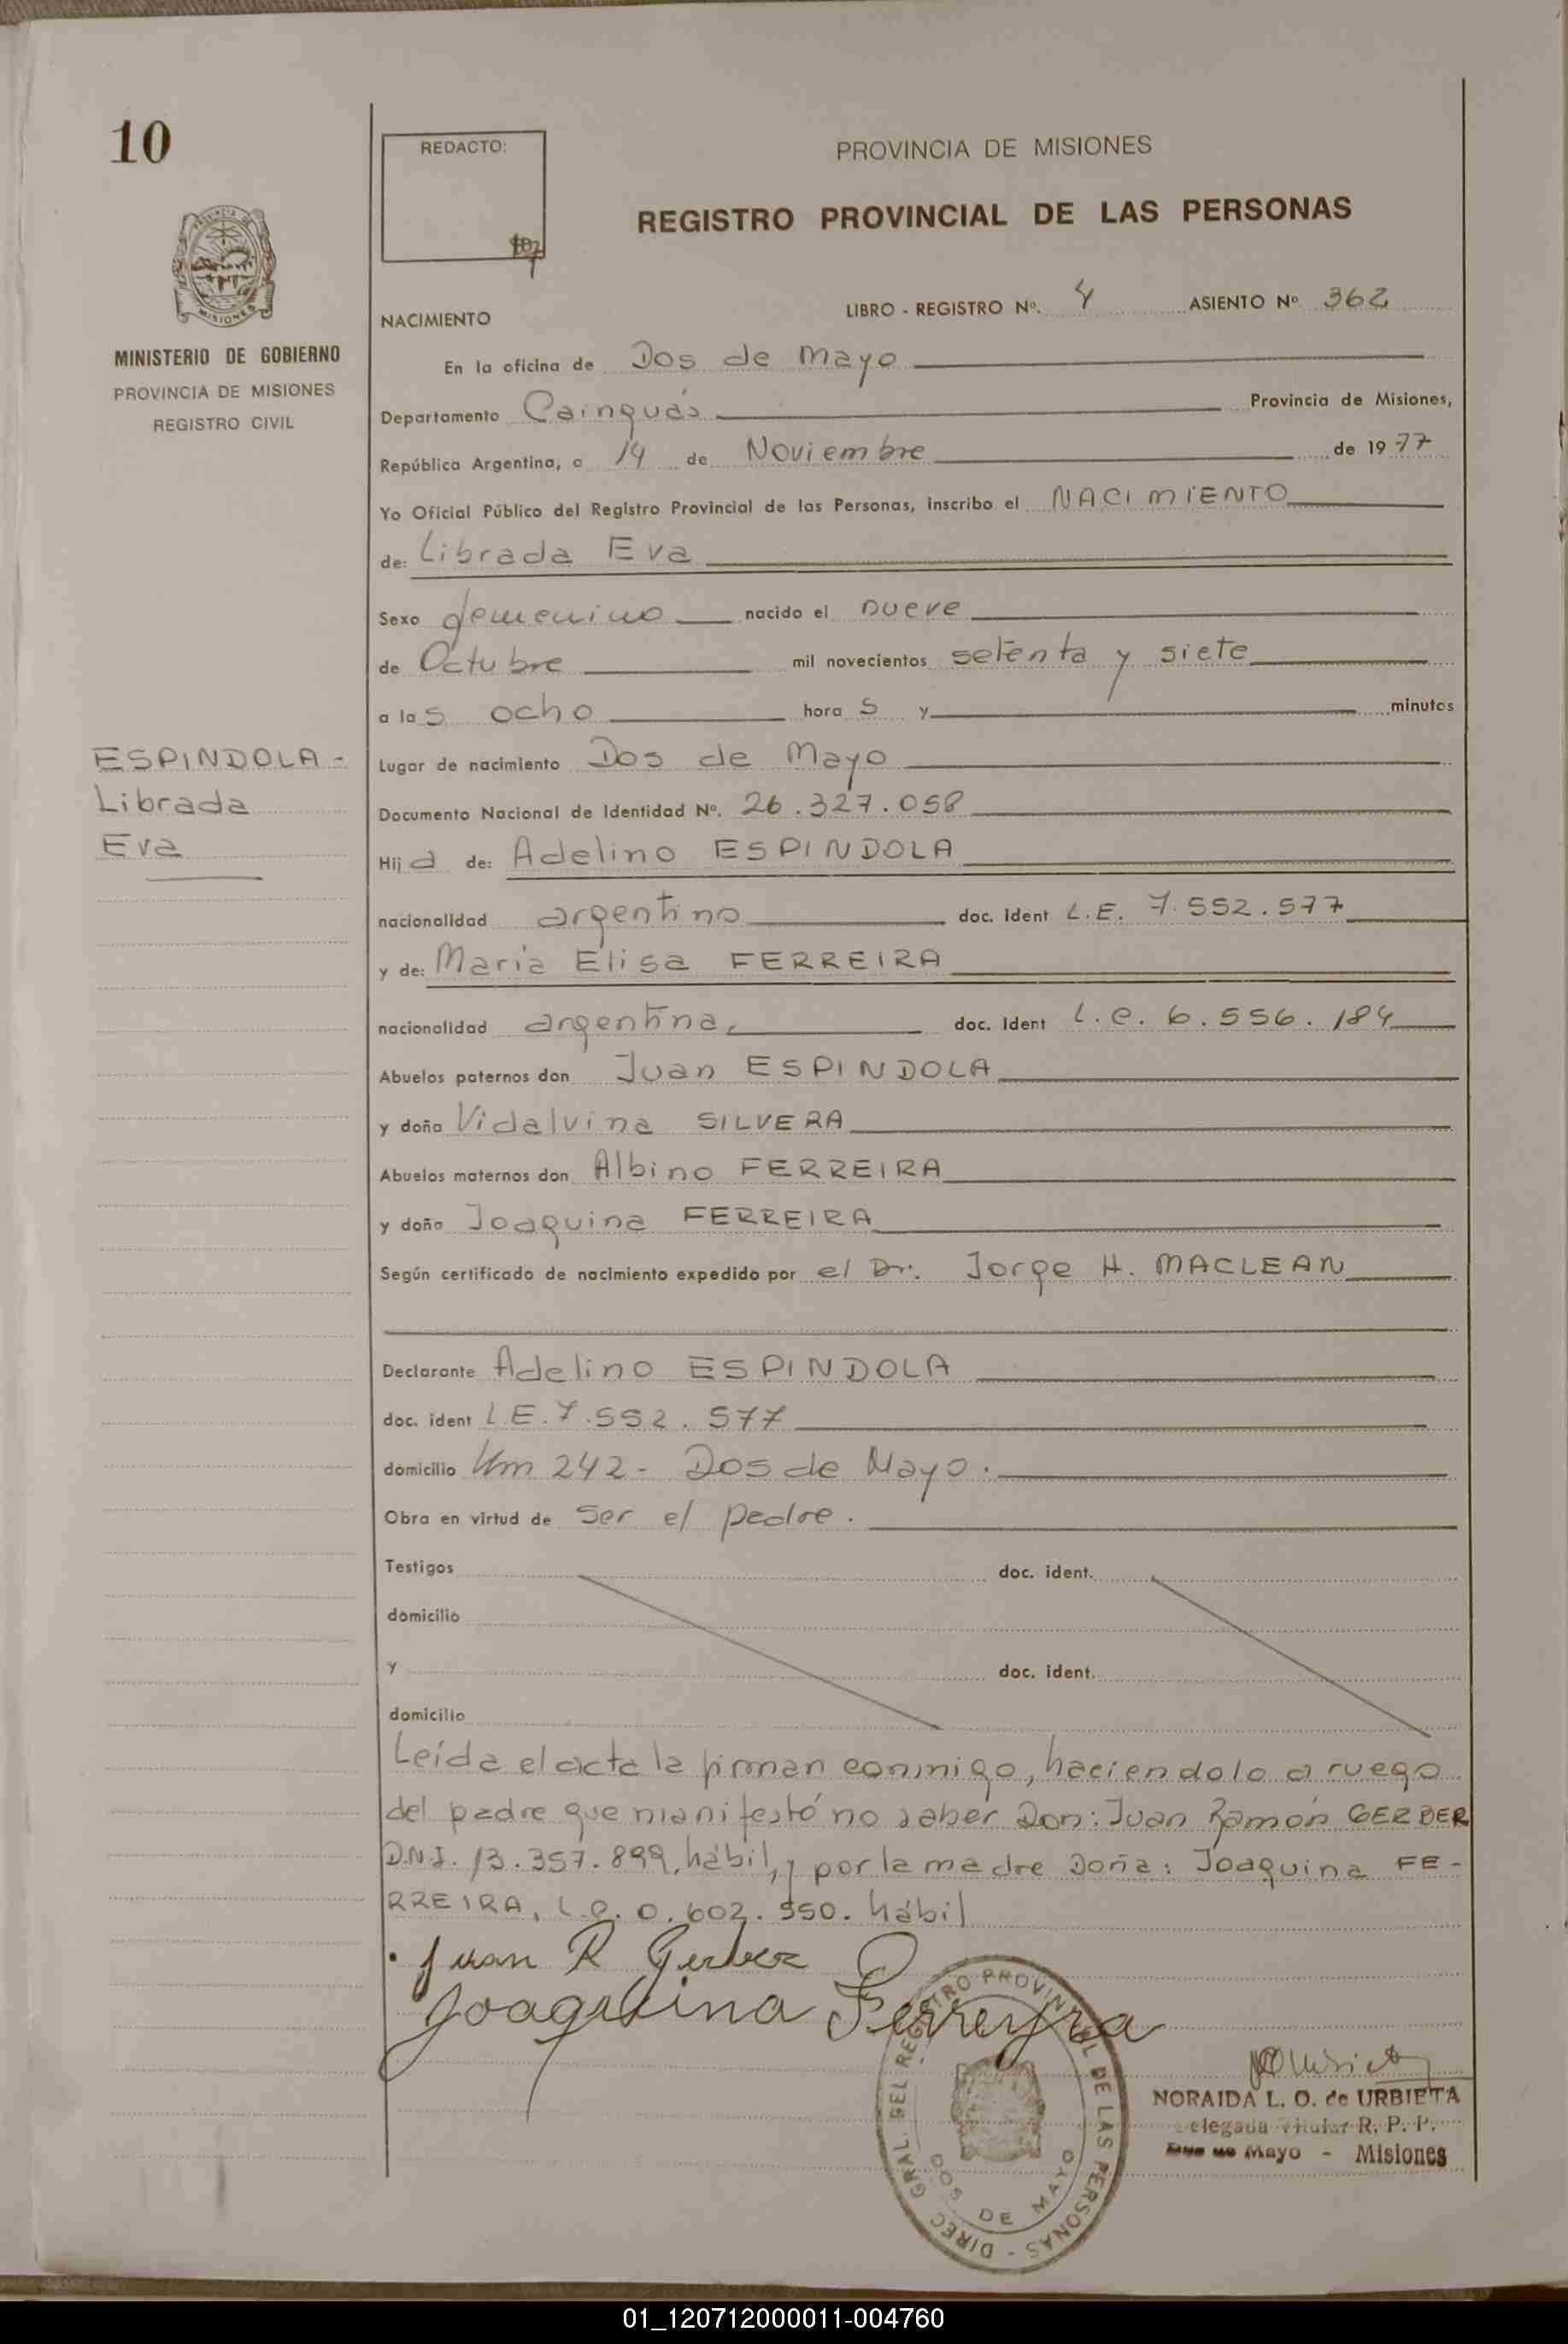 10
REDACTO:
PROVINCIA DE MISIONES
REGISTRO PROVINCIAL DE LAS PERSONAS
MISIONES
MINISTERIO DE GOBIERNO
PROVINCIA DE MISIONES
REGISTRO CIVIL
NACIMIENTO
LIBRO - REGISTRO Nº. 4 ASIENTO Nº 362
En la oficina de Dos de Mayo
Departamento Cainguás Provincia de Misiones,
República Argentina, a 14 de Noviembre de 1977
Yo Oficial Público del Registro Provincial de las Personas, inscribo el NACIMIENTO
de: Librada Eva
Sexo femenino nacido el nueve
de Octubre mil novecientos setenta y siete
a las ocho horas y minutos
ESPINDOLA -
Librada
Eva
Lugar de nacimiento Dos de Mayo
Documento Nacional de Identidad Nº. 26.327.058
Hija de: Adelino ESPINDOLA
nacionalidad argentino doc. Ident L.E. 7.552.577
y de: María Elisa FERREIRA
nacionalidad argentina, doc. Ident L.C. 6.556.184
Abuelos paternos don Juan ESPINDOLA
y doña Vidalvina SILVERA
Abuelos maternos don Albino FERREIRA
y doña Joaquina FERREIRA
Según certificado de nacimiento expedido por el Dr. Jorge H. MACLEAN
Declarante Adelino ESPINDOLA
doc. ident L.E. 7.552.577
domicilio Km 242 - Dos de Mayo.
Obra en virtud de ser el padre.
Testigos doc. ident.
domicilio
y doc. ident.
domicilio
Leída el acta la firman conmigo, haciendolo a ruego
del padre que manifestó no saber Don: Juan Ramón GERBER
D.N.I. 13.357.899, hábil, y por la madre Doña: Joaquina FE-
RREIRA, L.C. 0.602.550. hábil
Juan R Gerber
Joaquina Ferreyra
DIREC. GRAL. DEL REGISTRO PROVINCIAL DE LAS PERSONAS -
DOS DE MAYO
NORAIDA L. O. de URBIETA
Delegada Titular R. P. P.
Dos de Mayo - Misiones
01_120712000011-004760